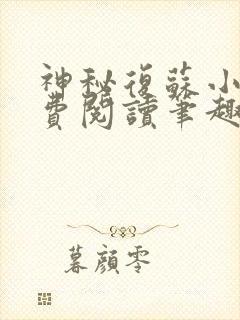 神秘復蘇小
費閱讀筆趣
暮顏零